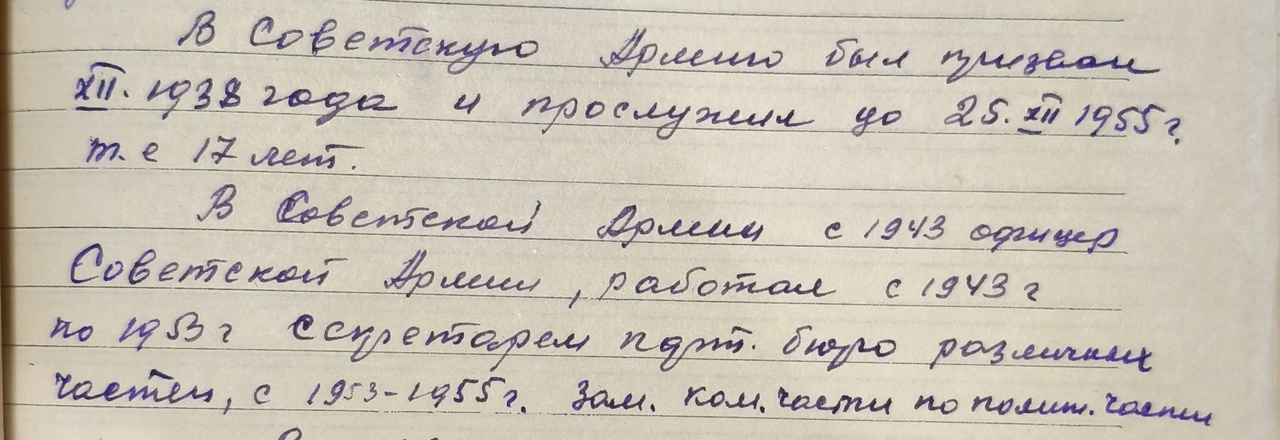 В Советскую Армию был призван
XII. 1938 года и прослужил до 25. XII 1955 г.
т. е 17 лет.
В Советской Армии с 1943 офицер
Советской Армии, работал с 1943 г
по 1953 г секретарем парт. бюро различных
частей, с 1953-1955 г. Зам. ком. части по полит. части